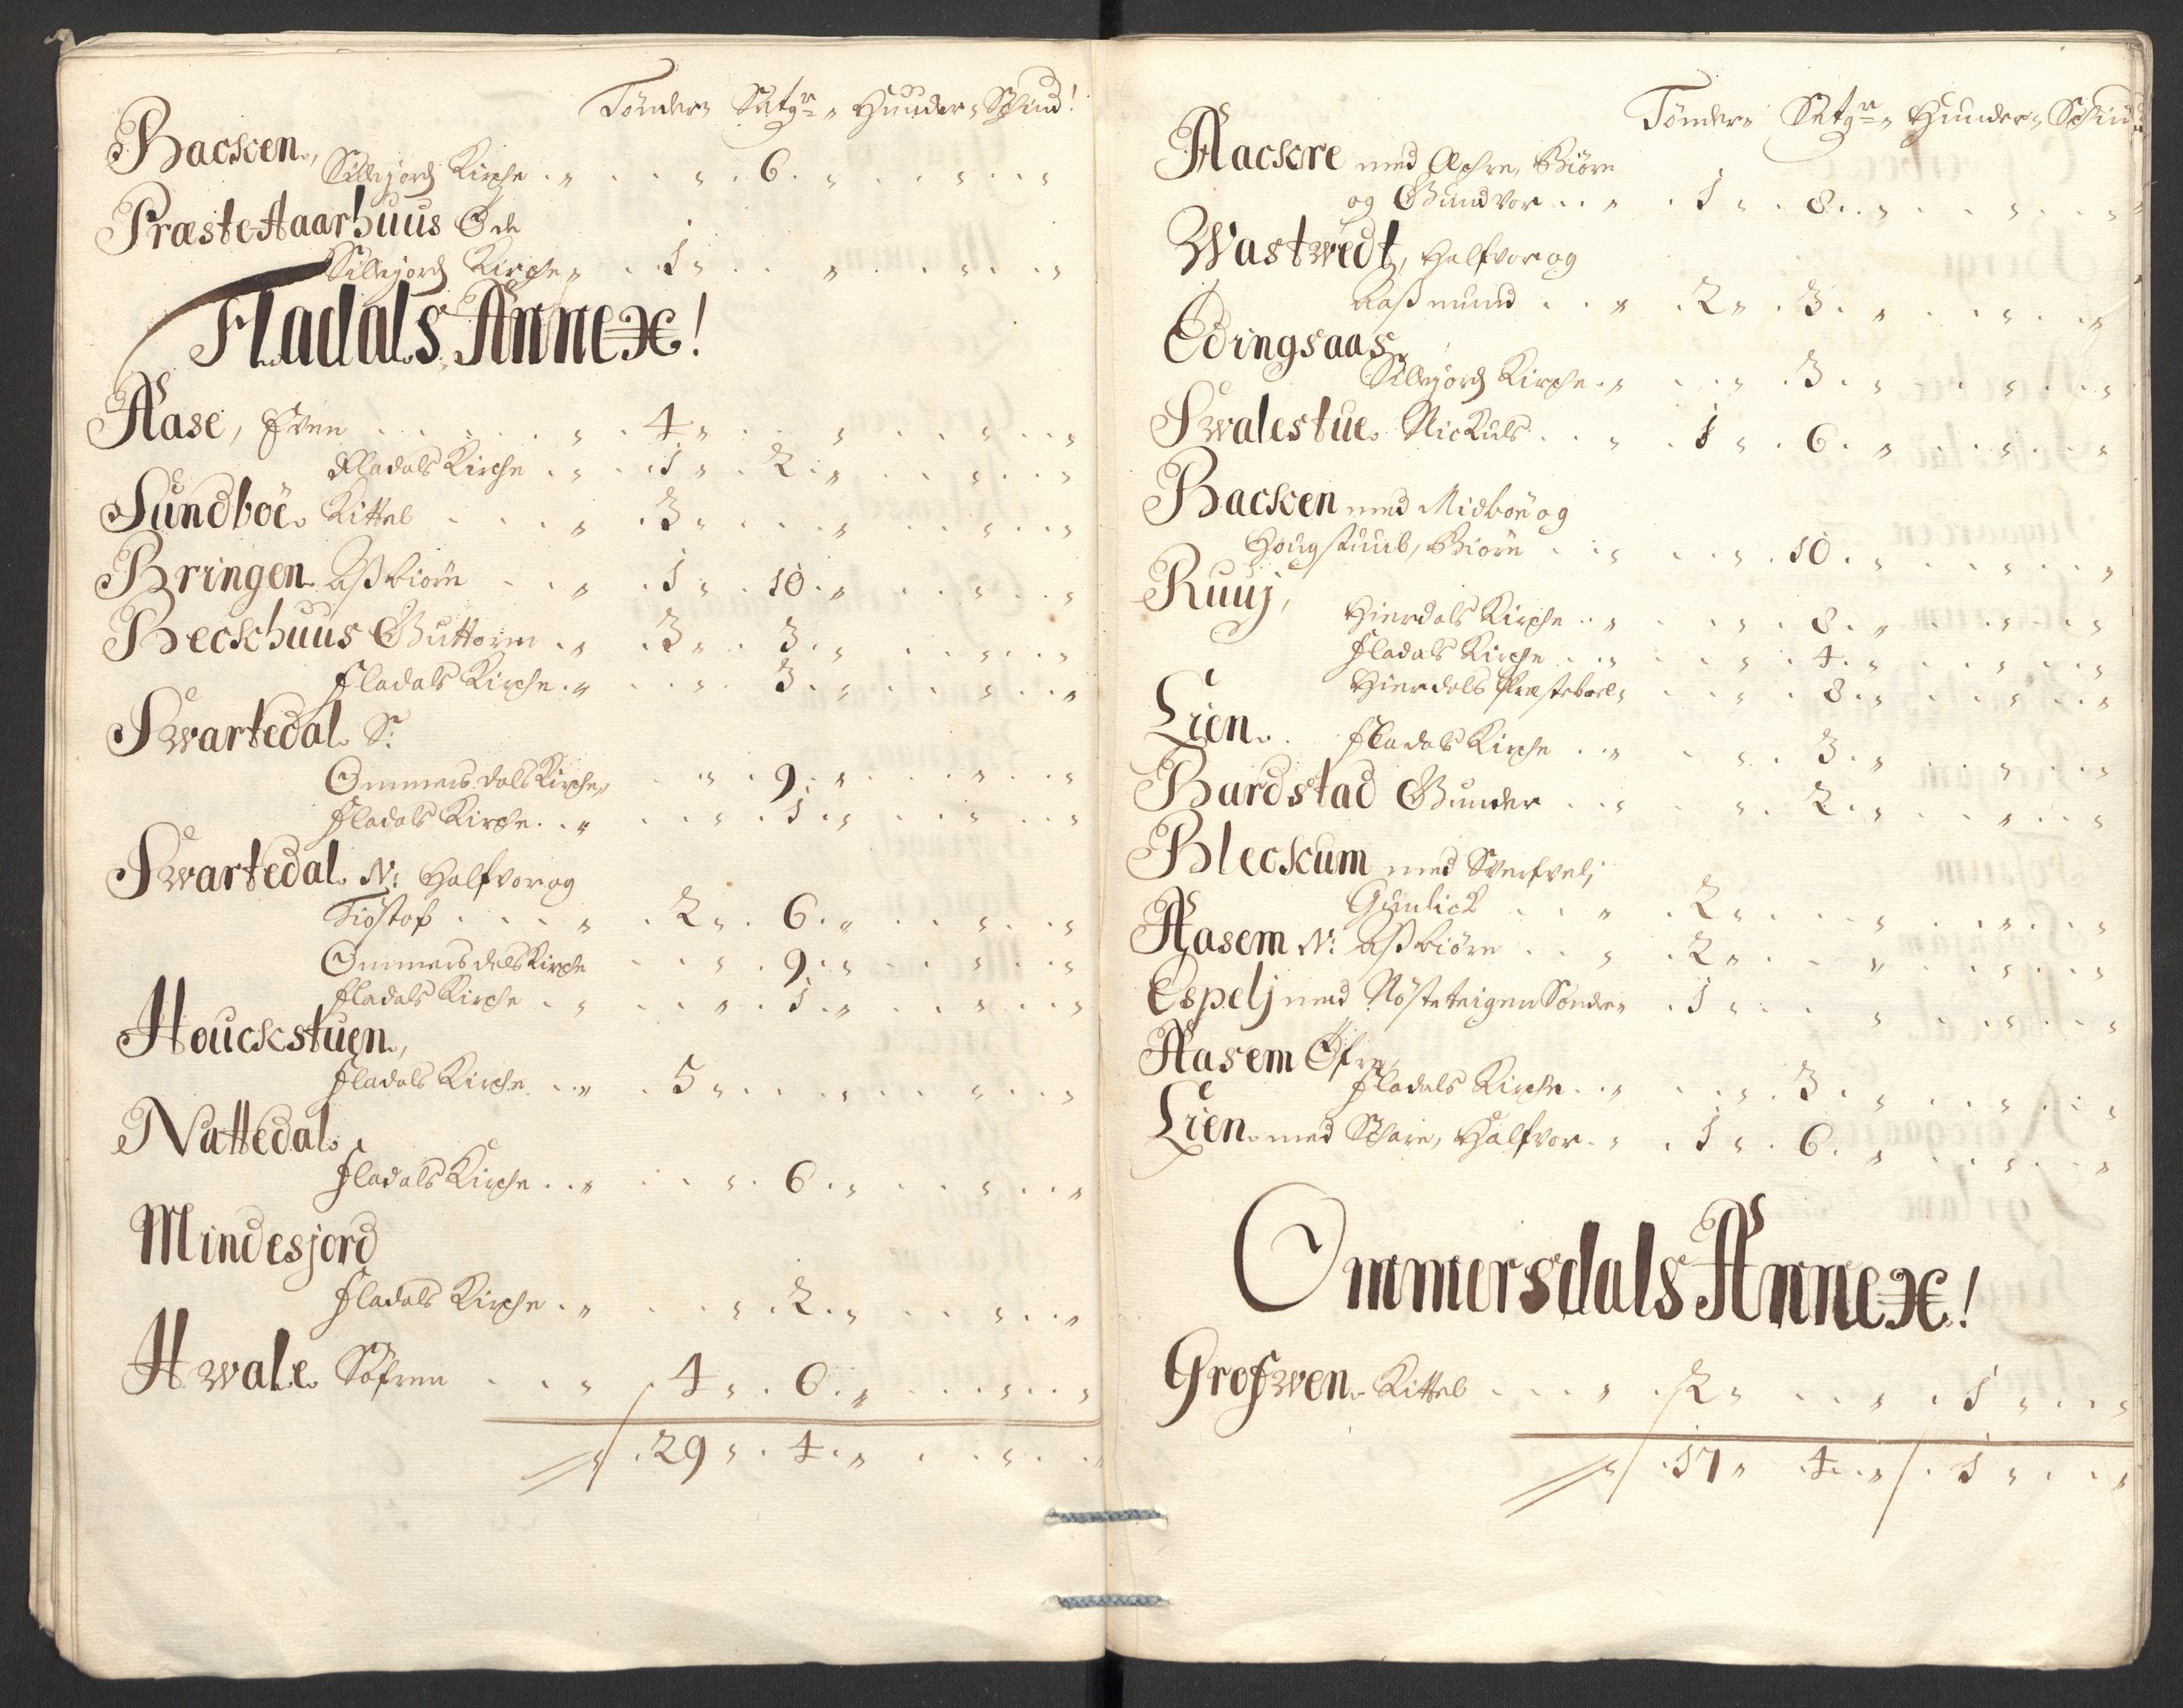 Tønder Setgr Huuder Schind!
Backen,
Sillejords Kirche . „ . . „ . 6 . „ . . „ . . „
Præste Aarhuus Øde
Sillejords Kirche „ . 1 „ . . „ . . „ . . „
Fladals Annex!
Aase, Even . . . . „ . 4 „ . . „ . . „ . . „
Fladals Kirche . „ . 1 „ . 2 . „ . . „ . . „
Sundböe. Kittel . . . „ . 3 „ . . „ . . „ . . „
Bringen. Assbiørn . . „ . 1 „ . 10 . „ . . „ . . „
Beckhuus Guttorm . „ . 3 „ . 3 . „ . . „ . . „
Fladals Kirche . „ . . „ . 3 . „ . . „ . . „
Swartedal. S:
Ommersdals Kirche „ . . „ . 9 . „ . . „ . . „
Fladals Kirche . . „ . . „ . 1 . „ . . „ . . „
Swartedal. N: Halfvor og
Tiøstof . . . „ . 2 „ . 6 . „ . . „ . . „
Ommersdals Kirche . . „ . 9 . „ . . „ . . „
Fladals Kirche . „ . . „ . 1 . „ . . „ . . „
Houckstuen,
Fladals Kirche . . „ . 5 „ . . . . . „ . . „
Nattedal.
Fladals Kirche . . „ . . „ . 6 . „ . . „ . . „
Mindesjord
Fladals Kirche . „ . . „ . 2 . „ . . „ . . „
Hwale. Söfren . . „ 4 „ . 6 . „ . . „ . . „
„ . 29 „ . 4 . „ . . „ . .
Tønder Setgr „ Huuder „ Schind
Aackre med Øchre, Biørn
og Gundvor . . „ . 1 „ . 8 . . „ . . „ . . „
Wastwedt, Halfvor og
Aasmund . . „ . 2 „ . 3 . „ . . „ . . „
Edingsaas,
Sillejords Kirche . „ . . „ . 3 . „ . . „ . . „
Swalestue. Nickuls . . „ . 1 „ . 6 . „ . . „ . . „
Backen med Midböe og
Hougstuul, Biørn . . „ . . „ . 10 . „ . . „ . . „
Ruuj,
Hierdals Kirche . . „ . . „ . 8 . „ . . „ . . „
Fladals Kirche . . „ . . „ . 4 . „ . . „ . . „
Hierdals Præsteboel „ . . „ . 8 . „ . . „ . . „
Lien. . Fladals Kirche . . „ . . „ . 3 . „ . . „ . . „
Bardstad Gunder . . „ . . „ . 2 . „ . . „ . . „
Bleckum med
Gunlick . . „ . 2 „ . . . „ . . „ . . „
Aasem N: Assbiørn . . „ . 2 „ . . „ . . „ . . „
Espelj med Nösteteigen Sönder „ . 1 „ . . „ . . „ . . „
Aasem Øfre,
Fladals Kirche . . „ . . „ . 3 . „ . . „ . . „
Lien. med Schare, Halfvor . „ . 1 „ . 6 . „ . . „ . . „
Ommersdals Annex!
Grofwen. Kittel . . . „ . 2 „ . . „ . 1 „ . . „
„ . 17 „ . 4 . . „ . 1 „ . . „